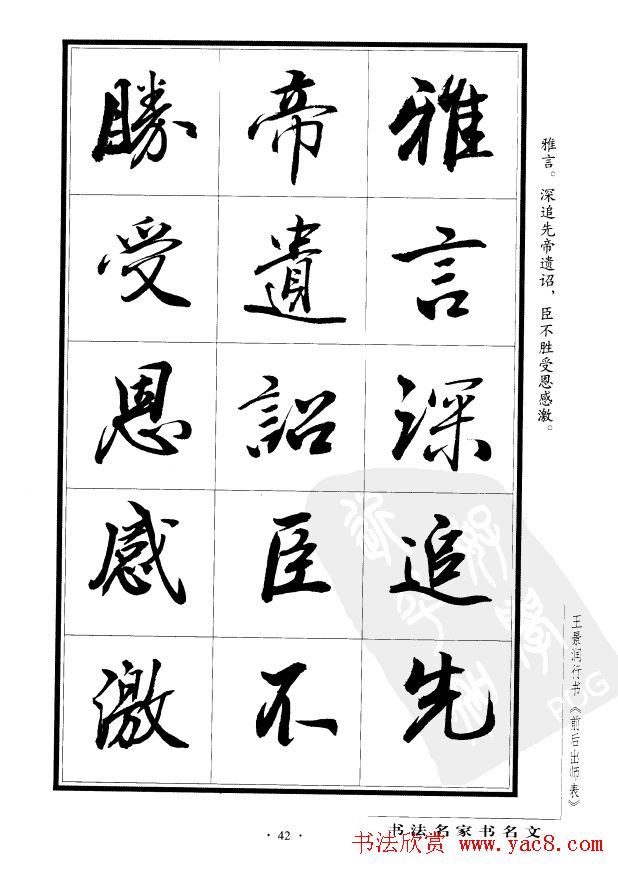 雅言深追先
帝遺詔臣不
勝受恩感激
雅言。深追先帝遗诏，臣不胜受恩感激。
王景润行书《前后出师表》
书法名家书名文
· 42 ·
书法欣赏 www.yac8.com